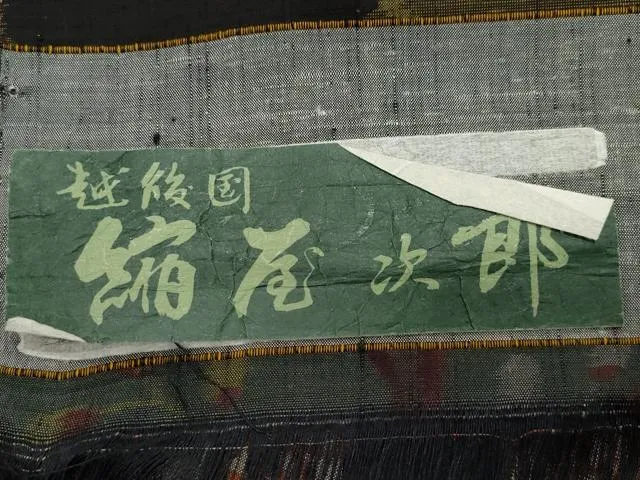 越後国
縮屋次郎